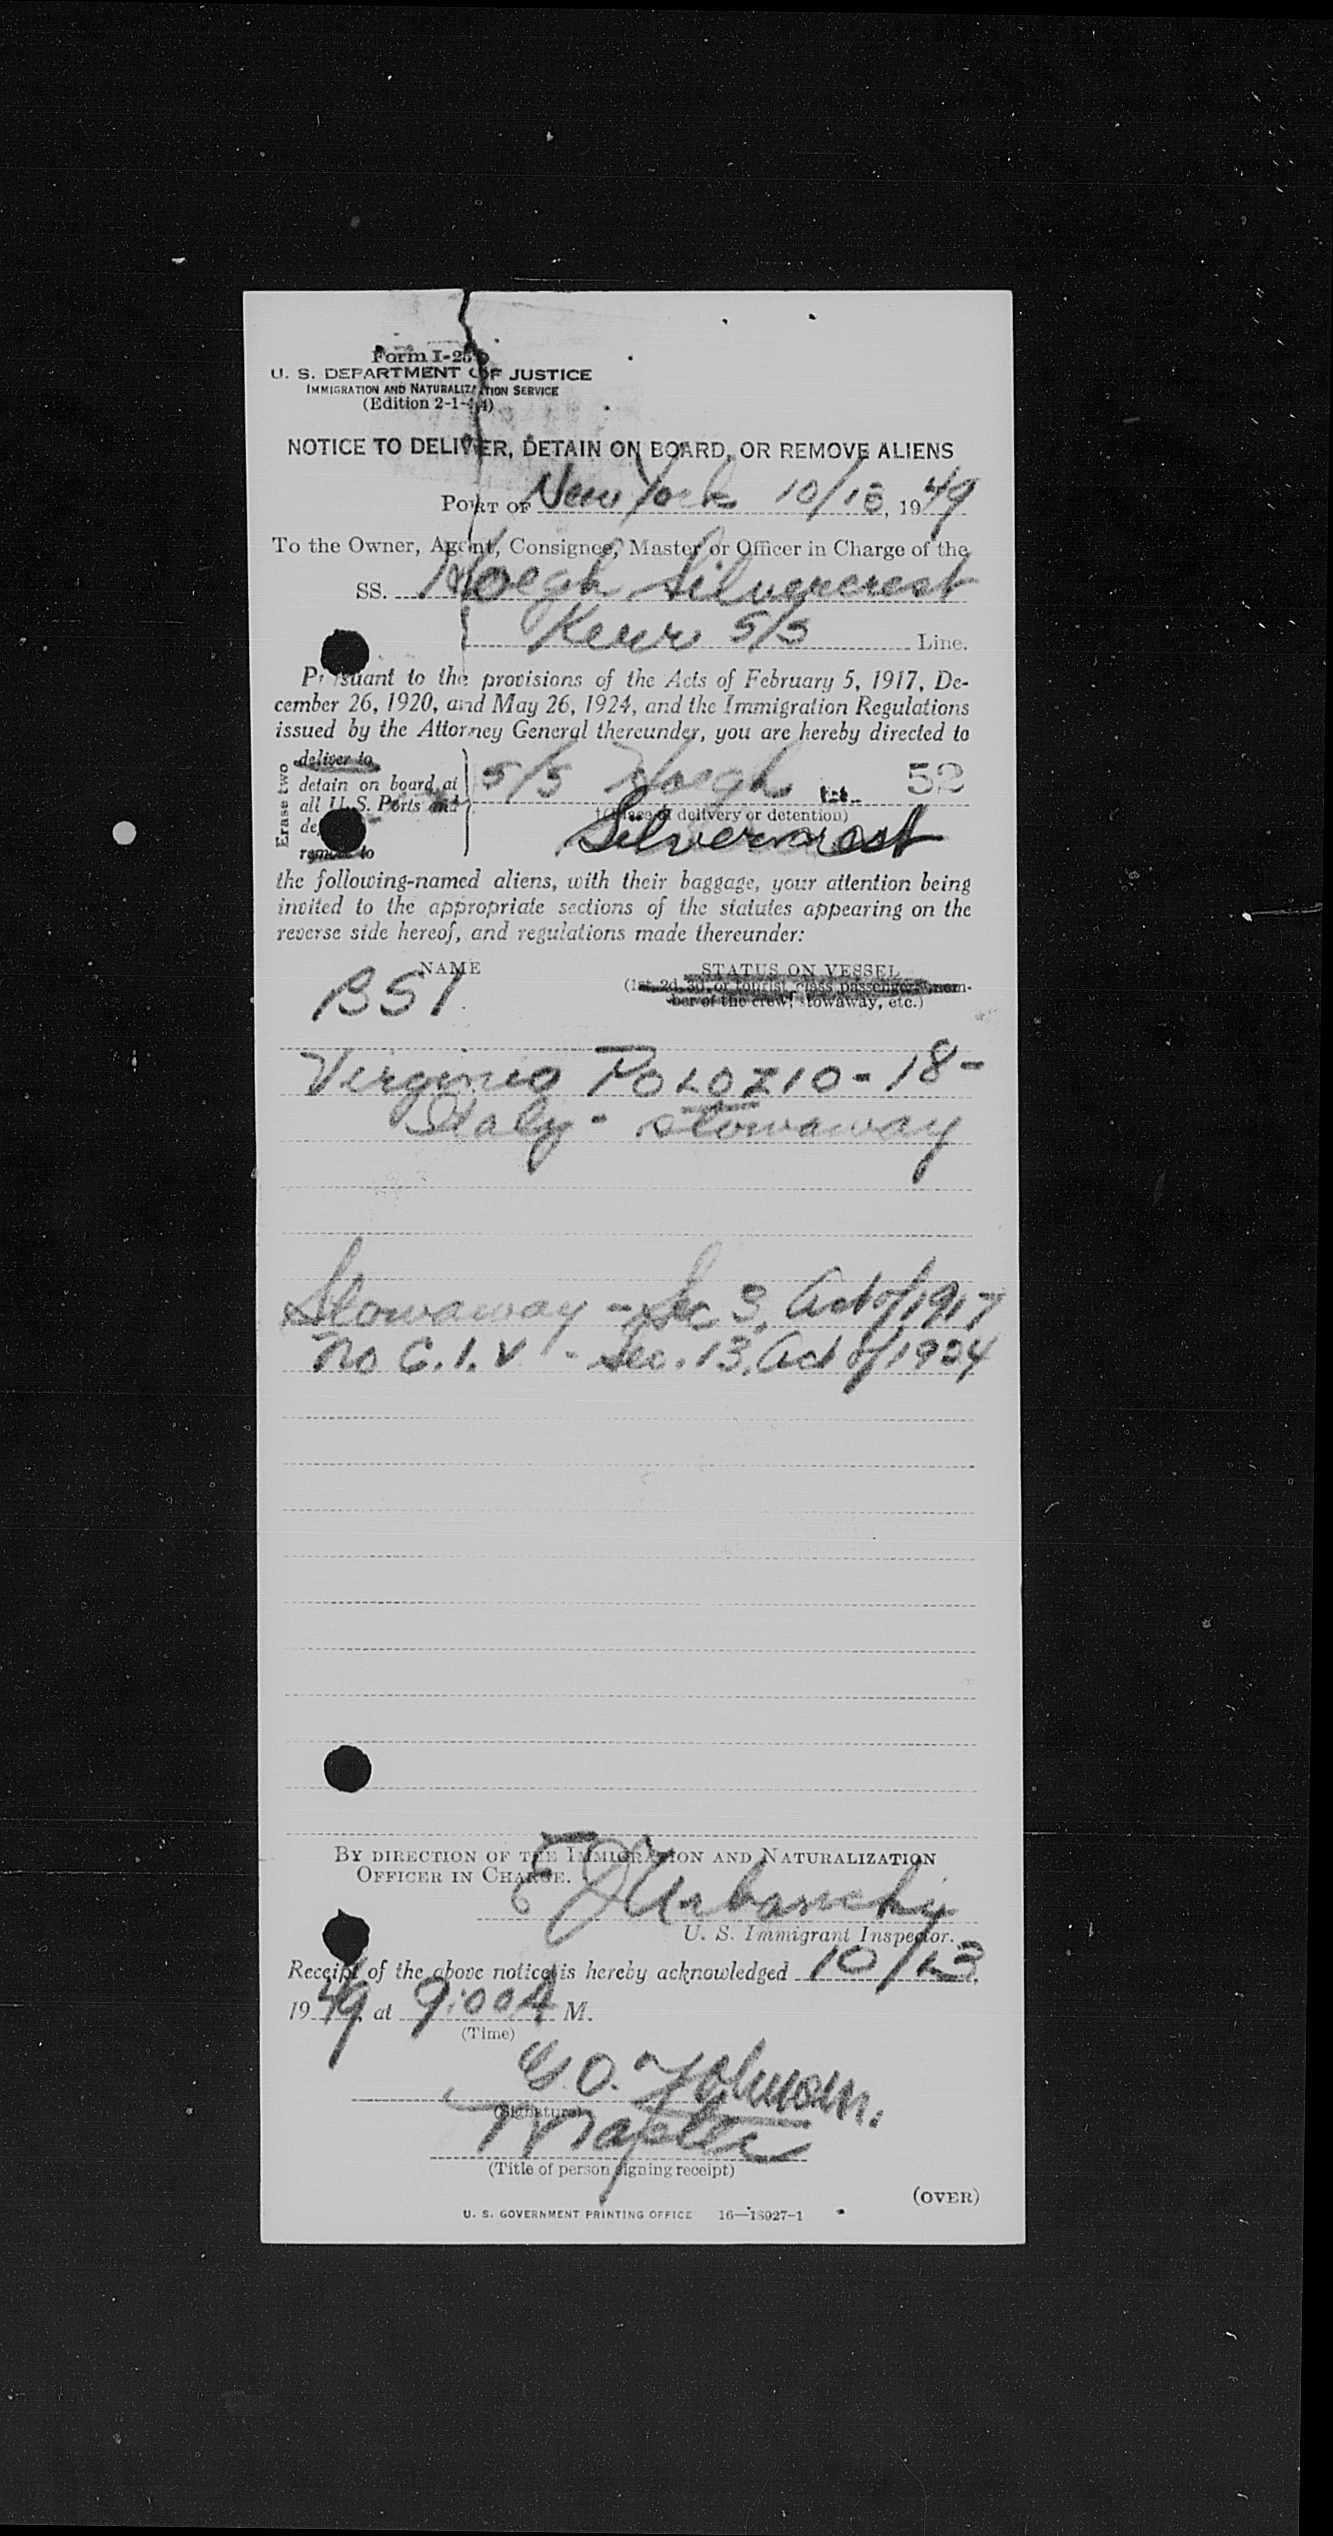 Form I-259
U. S. DEPARTMENT OF JUSTICE
IMMIGRATION AND NATURALIZATION SERVICE
(Edition 2-1-44)
NOTICE TO DELIVER, DETAIN ON BOARD, OR REMOVE ALIENS
PORT OF New York 10/13, 1949
To the Owner, Agent, Consignee, Master or Officer in Charge of the
SS. Hoegh Silvercrest
Kerr S/S Line.
Pursuant to the provisions of the Acts of February 5, 1917, De-
cember 26, 1920, and May 26, 1924, and the Immigration Regulations
issued by the Attorney General thereunder, you are hereby directed to
Erase two
deliver to
detain on board at
all U. S. Ports and
remove to
S/S Hoegh 52
(Place of delivery or detention)
Silvercrest
the following-named aliens, with their baggage, your attention being
invited to the appropriate sections of the statutes appearing on the
reverse side hereof, and regulations made thereunder:
NAME STATUS ON VESSEL
(1st, 2d, 3d, or tourist class passengers, mem-
ber of the crew, stowaway, etc.)
BSI
Virginio POLOZIO - 18 -
Italy - stowaway
Stowaway - Sec 3, Act of 1917
No C.I.V. - Sec. 13, Act of 1924
BY DIRECTION OF THE IMMIGRATION AND NATURALIZATION
OFFICER IN CHARGE.
U. S. Immigrant Inspector.
Receipt of the above notice is hereby acknowledged 10/13,
1949, at 9:00 A M.
(Time)
(Signature)
(Title of person signing receipt)
(OVER)
U. S. GOVERNMENT PRINTING OFFICE 16—18927-1